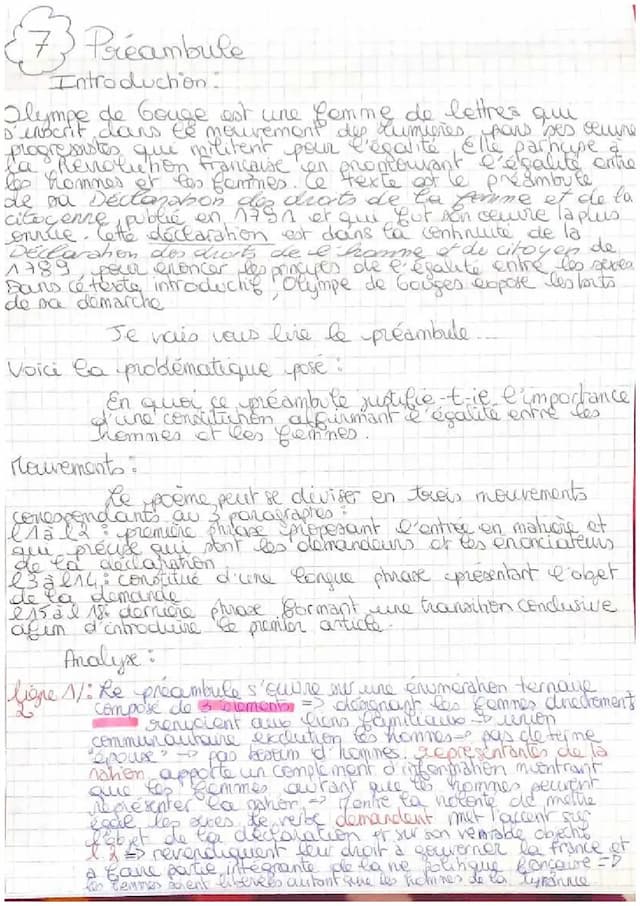 7 Préambule
Introduction :
Olympe de Gouge est une femme de lettres qui
s'inscrit dans le mouvement des lumières, dans ses œuvres
progressistes qui militent pour l'égalité. Elle participe à
la Révolution française en promouvant l'égalité entre
les hommes et les femmes. Ce texte est le préambule
de sa Déclaration des droits de la femme et de la
citoyenne, publié en 1791 et qui fut son œuvre la plus
connue. Cette déclaration est dans la continuité de la
Déclaration des droits de l'homme et du citoyen de
1789, pour énoncer les principes de l'égalité entre les sexes
Dans ce texte introductif, Olympe de Gouges expose les buts
de sa démarche
Je vais vous lire le préambule...
Voici la problématique posé :
En quoi ce préambule justifie-t-ie l'importance
d'une constitution affirmant l'égalité entre les
hommes et les femmes.
Mouvements :
Le poème peut se diviser en trois mouvements
correspondants au 3 paragraphes :
l 1 à l 2 : première phrase proposant l'entrée en matière et
qui précise qui sont les demandeurs et les énonciateurs
de la déclaration
l 3 à l 14 : constitué d'une longue phrase présentant l'objet
de la demande
l 15 à l 18 : dernière phrase formant une transition conclusive
afin d'introduire le premier article.
Analyse :
ligne 1/2 : Le préambule s'ouvre sur une énumération ternaire
composé de 3 éléments => désignant les femmes directement
renvoient aux liens familiaux → union
communautaire exclution les hommes → pas de terme
"épouse" → pas besoin d'hommes. représentantes de la
nation, apporte un complément d'information montrant
que les femmes autant que les hommes peuvent
représenter la nation → montre la volonté de mettre
égale les sexes. Le verbe demandent met l'accent sur
l'objet de la déclaration et sur son véritable objectif
l 2 => revendiquent leur droit à gouverner la france et
à faire partie intégrante de la vie politique française =>
les femmes soient libérées autant que les hommes de la tyrannie